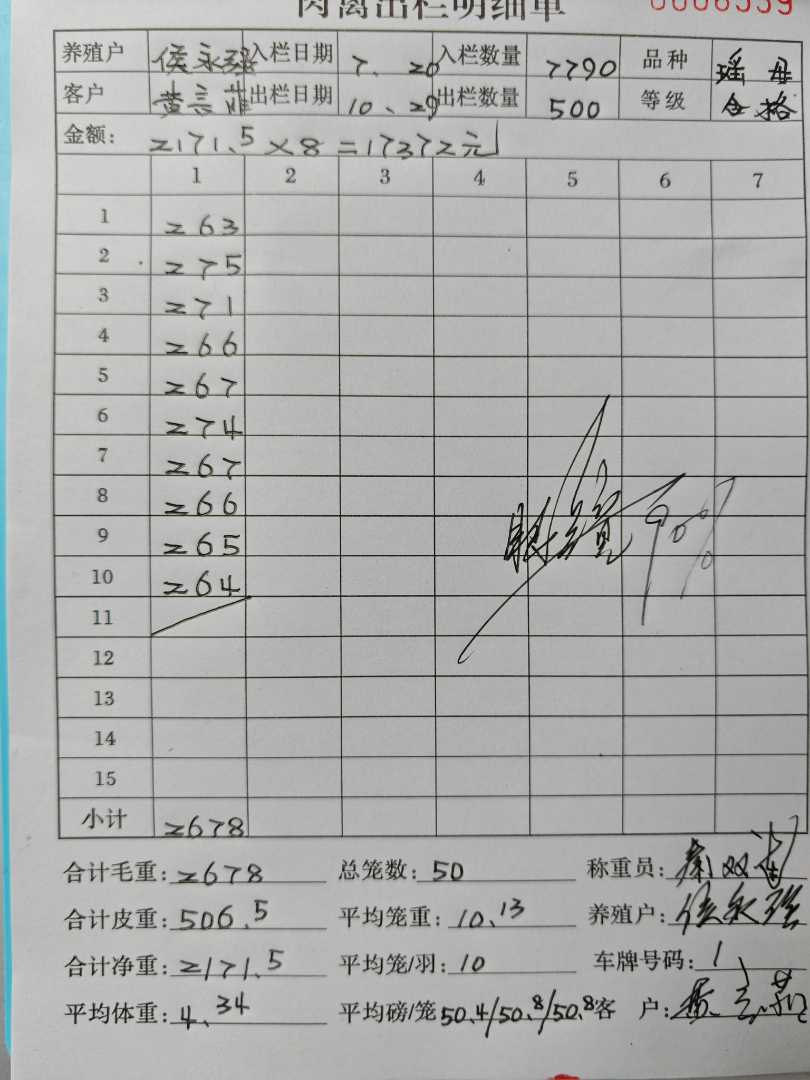 肉禽出栏明细单 0006559
养殖户 侯永强 入栏日期 7.20 入栏数量 7790 品种 瑶母
客户 出栏日期 10.29 出栏数量 500 等级 合格
金额: 2171.5×8=17372元
1 2 3 4 5 6 7
1 263
2 275
3 271
4 266
5 267
6 274
7 267
8 266
9 265
10 264
11
12
13
14
15
90%
小计 2678
合计毛重: 2678 总笼数: 50 称重员:
合计皮重: 506.5 平均笼重: 10.13 养殖户: 侯永强
合计净重: 2171.5 平均笼/羽: 10 车牌号码: 1
平均体重: 4.34 平均磅/笼 50.4/50.8/50.8 客户: